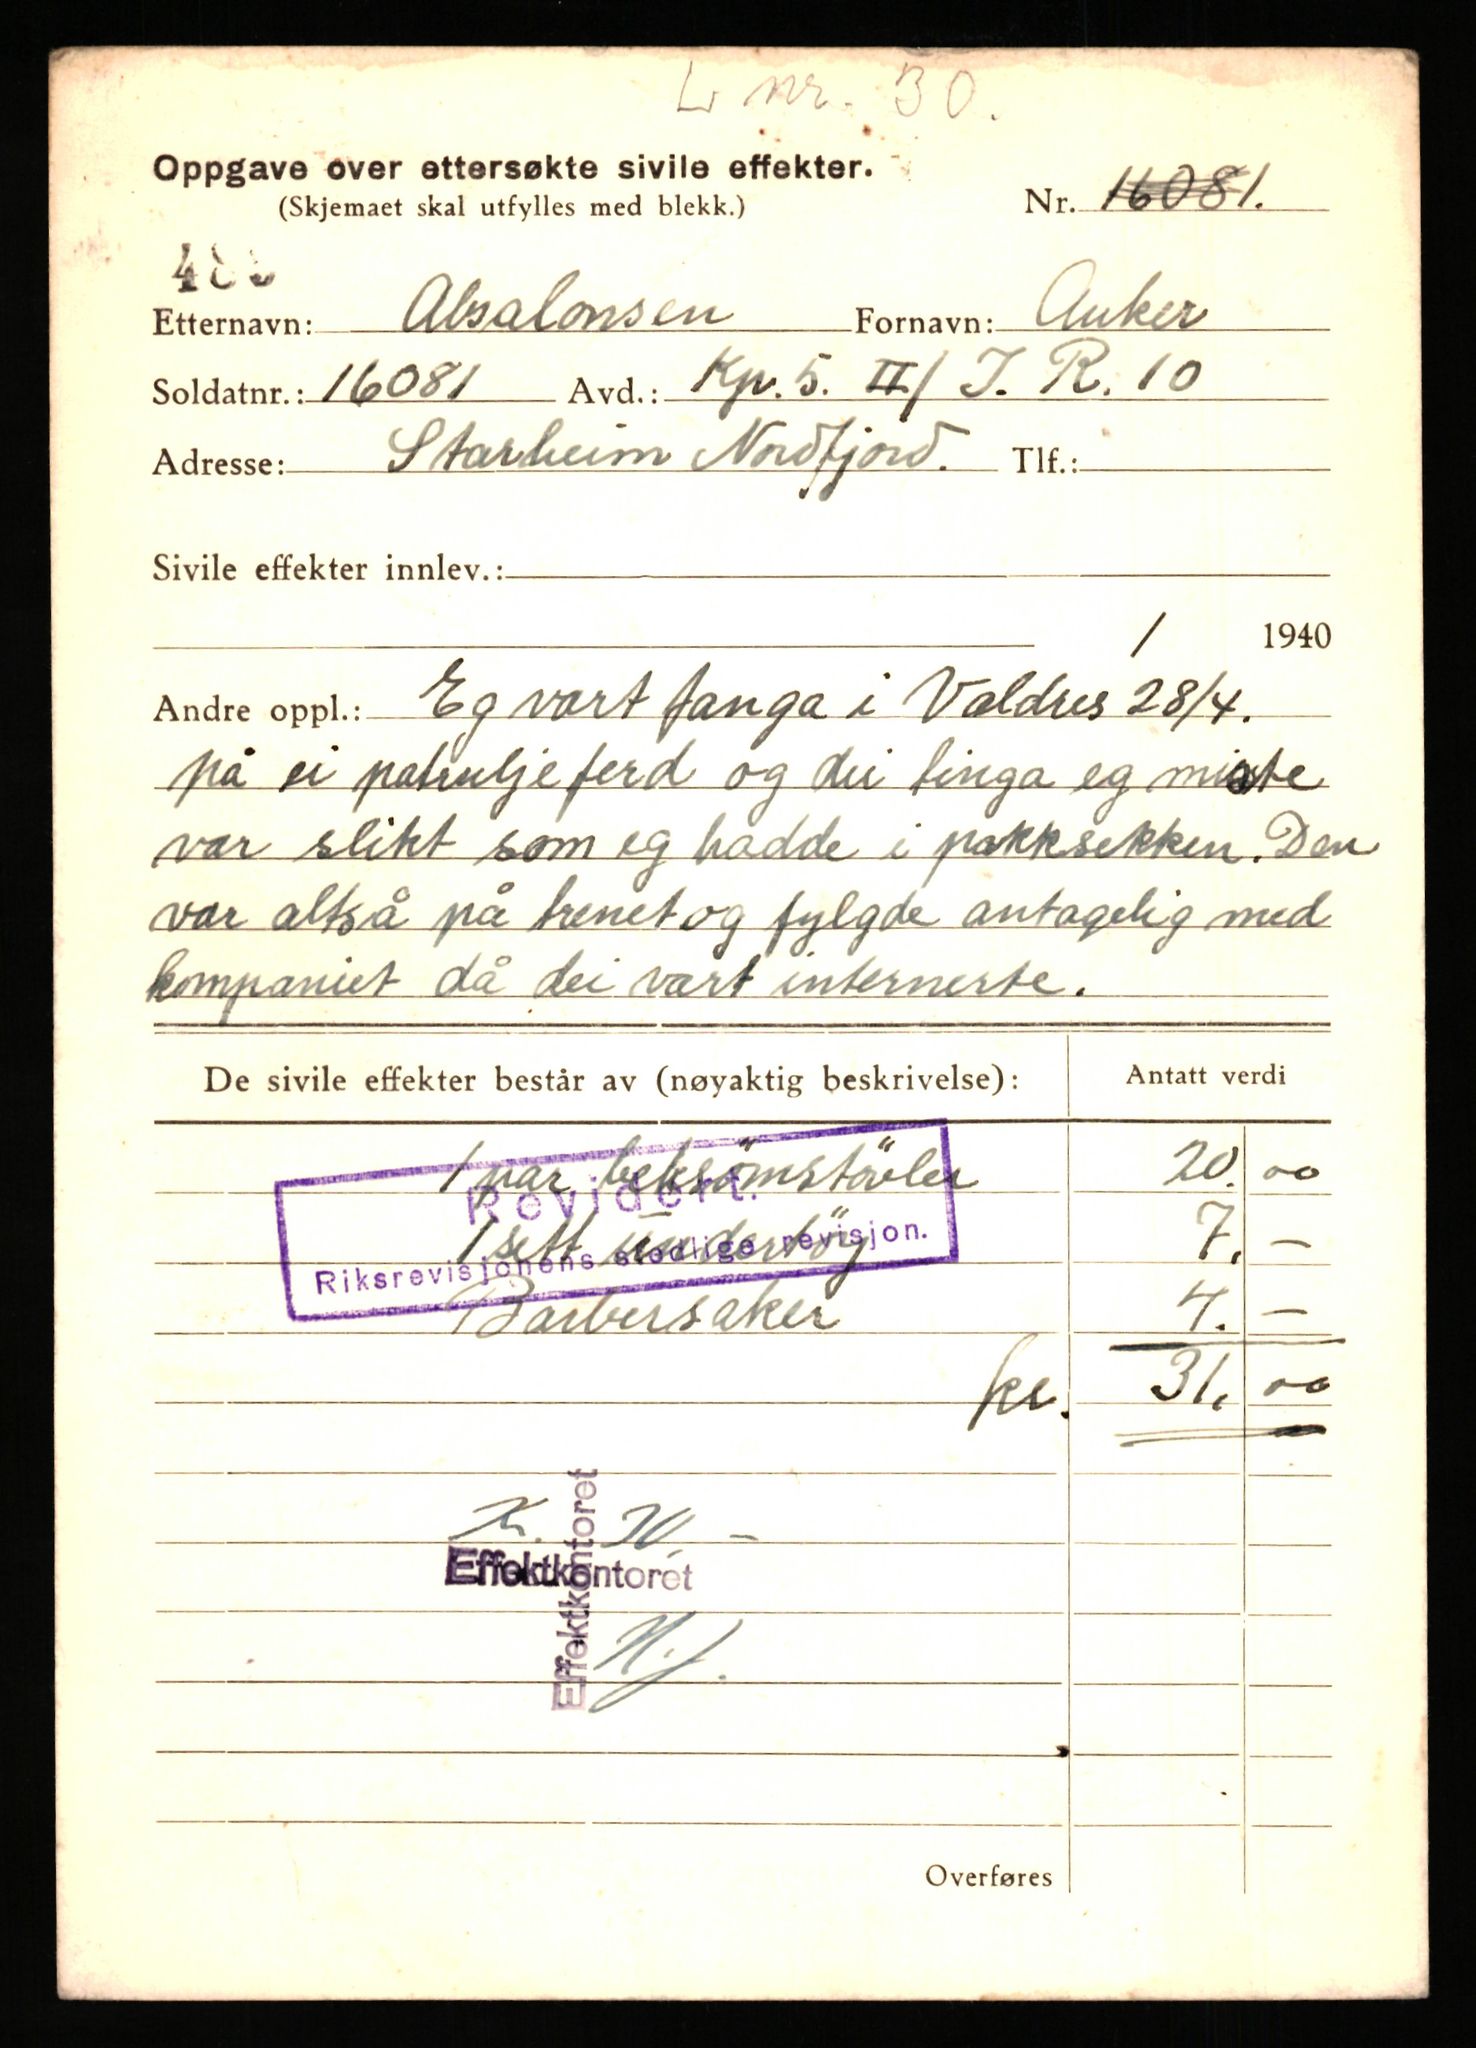 L nr. 30.
Oppgave over ettersøkte sivile effekter.
(Skjemaet skal utfylles med blekk.)
Nr. 16081.
Etternavn: Absalonsen Fornavn: Anker
Soldatnr.: 16081 Avd.: Kp. 5. II/ I. R. 10
Adresse: Starheim Nordfjord. Tlf.:
Sivile effekter innlev.:
/ 1940
Andre oppl.: Eg vart fanga i Valdres 28/4.
på ei patruljeferd og dei tinga eg miste
var slikt som eg hadde i pakksekken. Den
var altså på trenet og fylgde antagelig med
kompaniet då dei vart internerte.
De sivile effekter består av (nøyaktig beskrivelse): Antatt verdi
1 par beksömstövler 20. 00
Revidert.
1 sett undertöy 7. —
Riksrevisjonens stedlige revisjon.
Barbersaker 4. —
kr. 31. 00
Effektkontoret
Effektkontoret
Overføres